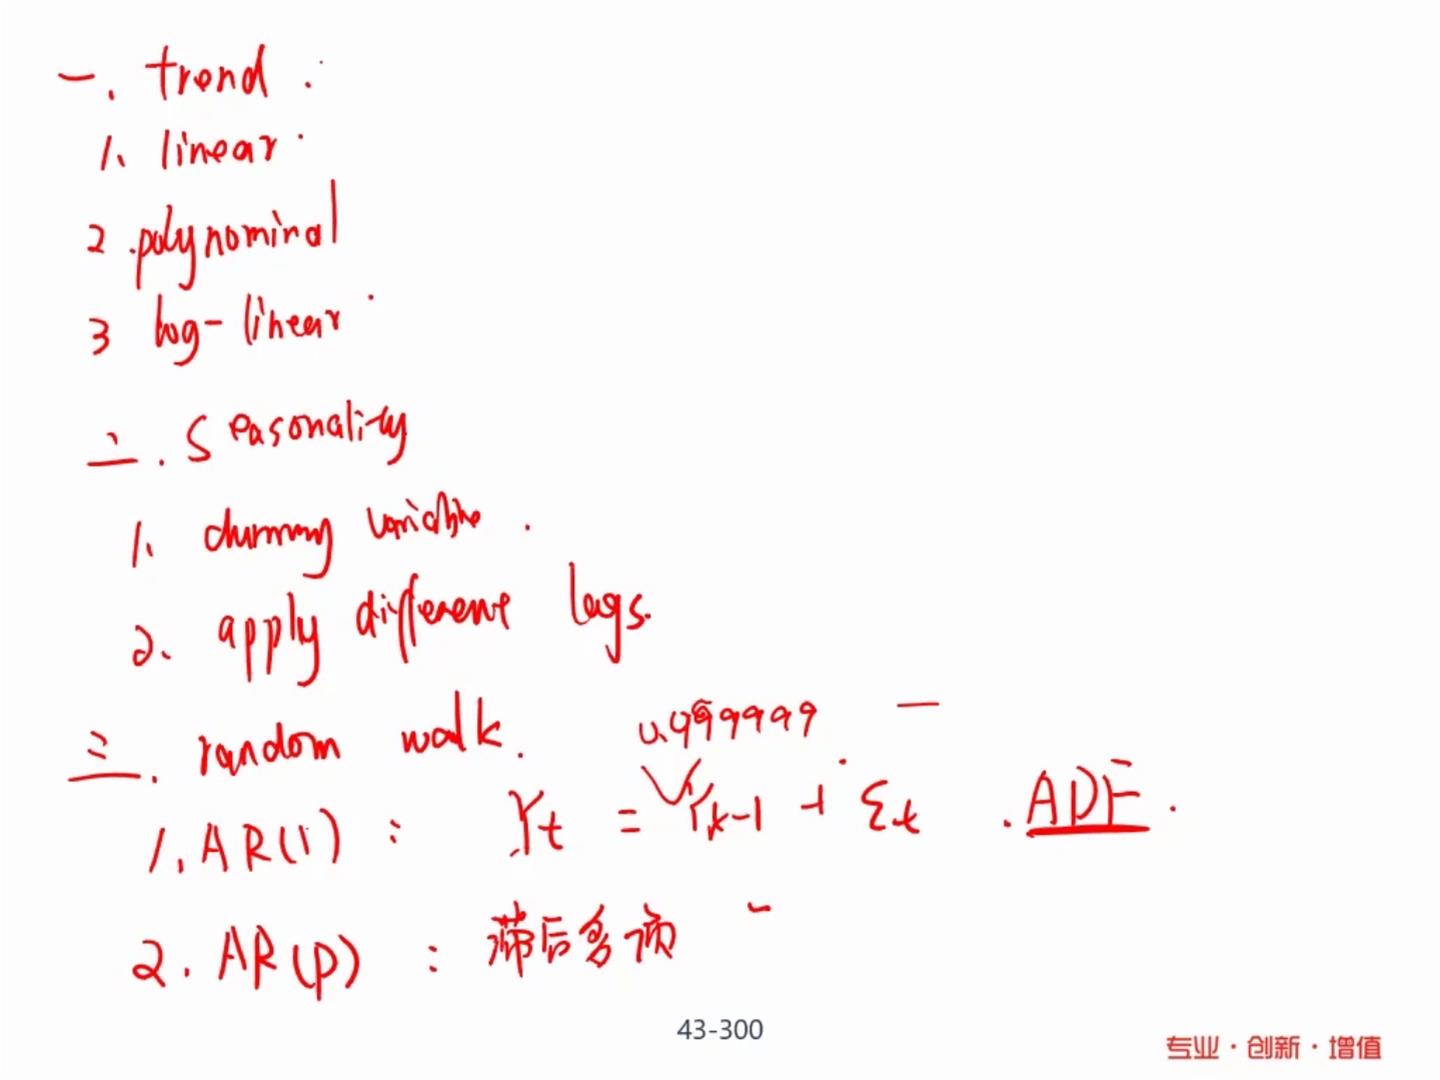 一. trend :
1. linear
2. polynominal
3 log-linear
二. Seasonality
1. dummy variable.
2. apply different lags.
三. random walk.
0.999999
1. AR(1) : Yt = Yk-1 + εt . ADF.
2. AR(p) : 滞后多项
43-300
专业·创新·增值